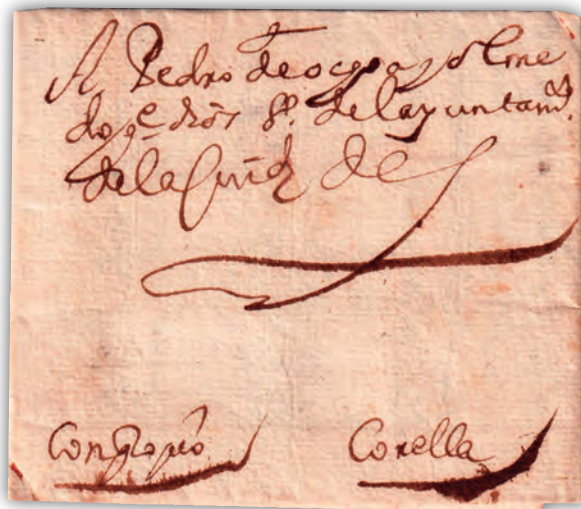 A Pedro de ocon y olme
do g.e dios g.e del ayuntam.to
de la Ciud de
Con propio Corella